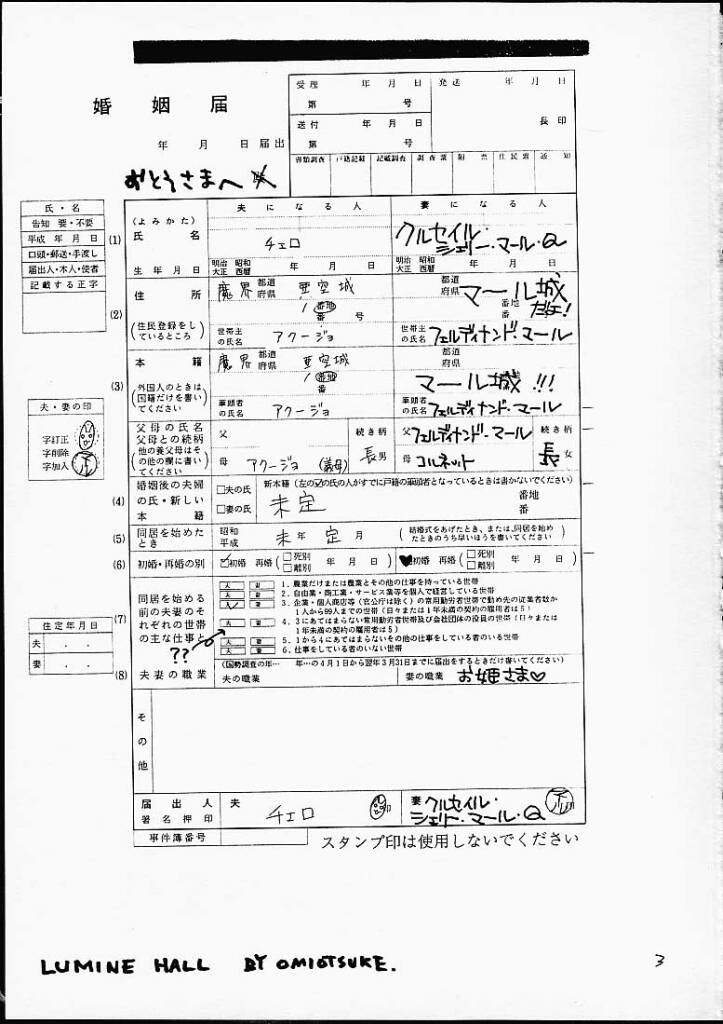 婚姻届
年 月 日 届出
受理 年 月 日
第 号
発送 年 月 日
送付 年 月 日
第 号
長印
書類調査 戸籍記載 記載調査 調査票 附票 住民票 通知
おとうさまへ
氏・名
告知 要・不要
平成 年 月 日
口頭・郵送・手渡し
届出人・本人・使者
記載する正字
(1)
(よみかた)
氏名
夫になる人
チェロ
妻になる人
クルセイル・
シェリー・マール・Q
生年月日
明治 昭和
大正 西暦
年 月 日
明治 昭和
大正 西暦
年 月 日
(2)
住所
(住民登録をしているところ)
魔界 都道府県 亜空城
1 番地
番 号
世帯主の氏名 アクージョ
都道府県 マール城
だよ!
番地
番 号
世帯主の氏名 フェルディナンド・マール
(3)
本籍
(外国人のときは国籍だけを書いてください)
魔界 都道府県 亜空城
1 番地
番
筆頭者の氏名 アクージョ
都道府県
マール城!!!
筆頭者の氏名 フェルディナンド・マール
夫・妻の印
字訂正
字削除
字加入
父母の氏名
父母との続柄
(他の養父母はその他の欄に書いてください)
父
母 アクージョ (義母)
続き柄
長男
父 フェルディナンド・マール
母 コルネット
続き柄
長女
(4)
婚姻後の夫婦の氏・新しい本籍
□夫の氏
□妻の氏
新本籍(左の☑の氏の人がすでに戸籍の筆頭者となっているときは書かないでください)
未定
番地
番
(5)
同居を始めたとき
昭和
平成
未年 定月
(結婚式をあげたとき、または、同居を始めたときのうち早いほうを書いてください)
(6)
初婚・再婚の別
初婚 再婚 (□死別 □離別 年 月 日)
初婚 再婚 (□死別 □離別 年 月 日)
(7)
同居を始める前の夫妻のそれぞれの世帯の主な仕事と
??
夫 妻 1. 農業だけまたは農業とその他の仕事を持っている世帯
夫 妻 2. 自由業・商工業・サービス業等を個人で経営している世帯
夫 妻 3. 企業・個人商店等(官公庁は除く)の常用勤労者世帯で勤め先の従業者数が1人から99人までの世帯(日々または1年未満の契約の雇用者は5)
夫 妻 4. 3にあてはまらない常用勤労者世帯及び会社団体の役員の世帯(日々または1年未満の契約の雇用者は5)
夫 妻 5. 1から4にあてはまらないその他の仕事をしている者のいる世帯
夫 妻 6. 仕事をしている者のいない世帯
住定年月日
夫 . .
妻 . .
(8)
夫妻の職業
(国勢調査の年…年…の4月1日から翌年3月31日までに届出をするときだけ書いてください)
夫の職業
妻の職業 お姫さま♡
その他
届出人署名押印
夫 チェロ
妻 クルセイル・
シェリー・マール・Q
事件簿番号
スタンプ印は使用しないでください
LUMINE HALL BY OMIOTSUKE.
3